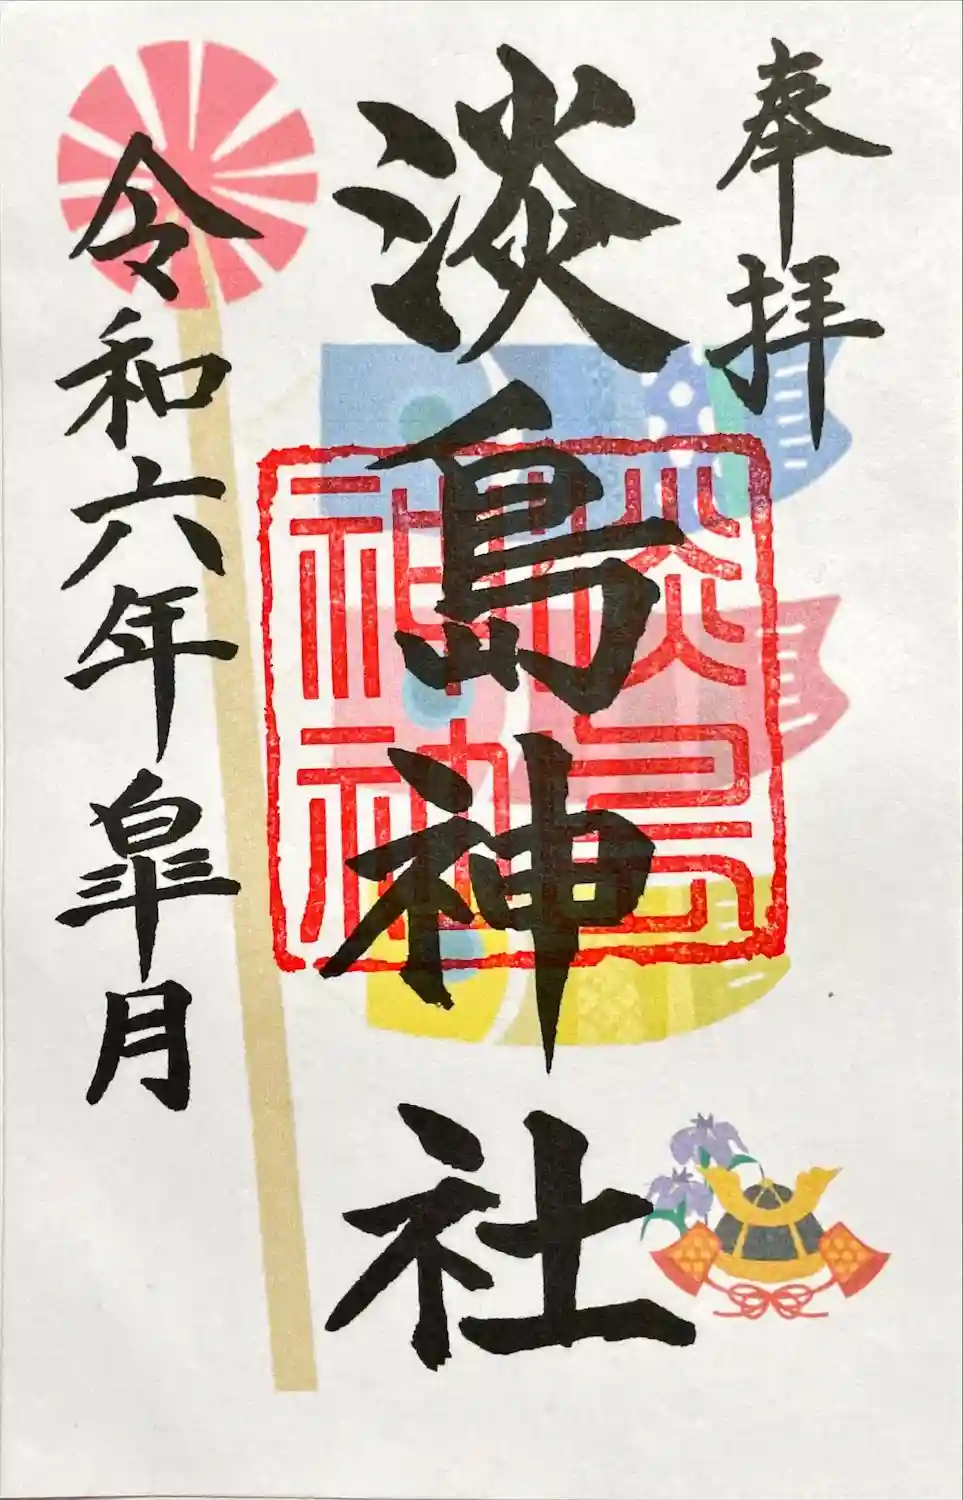 奉拝
淡島神社
淡島
神社
令和六年皐月